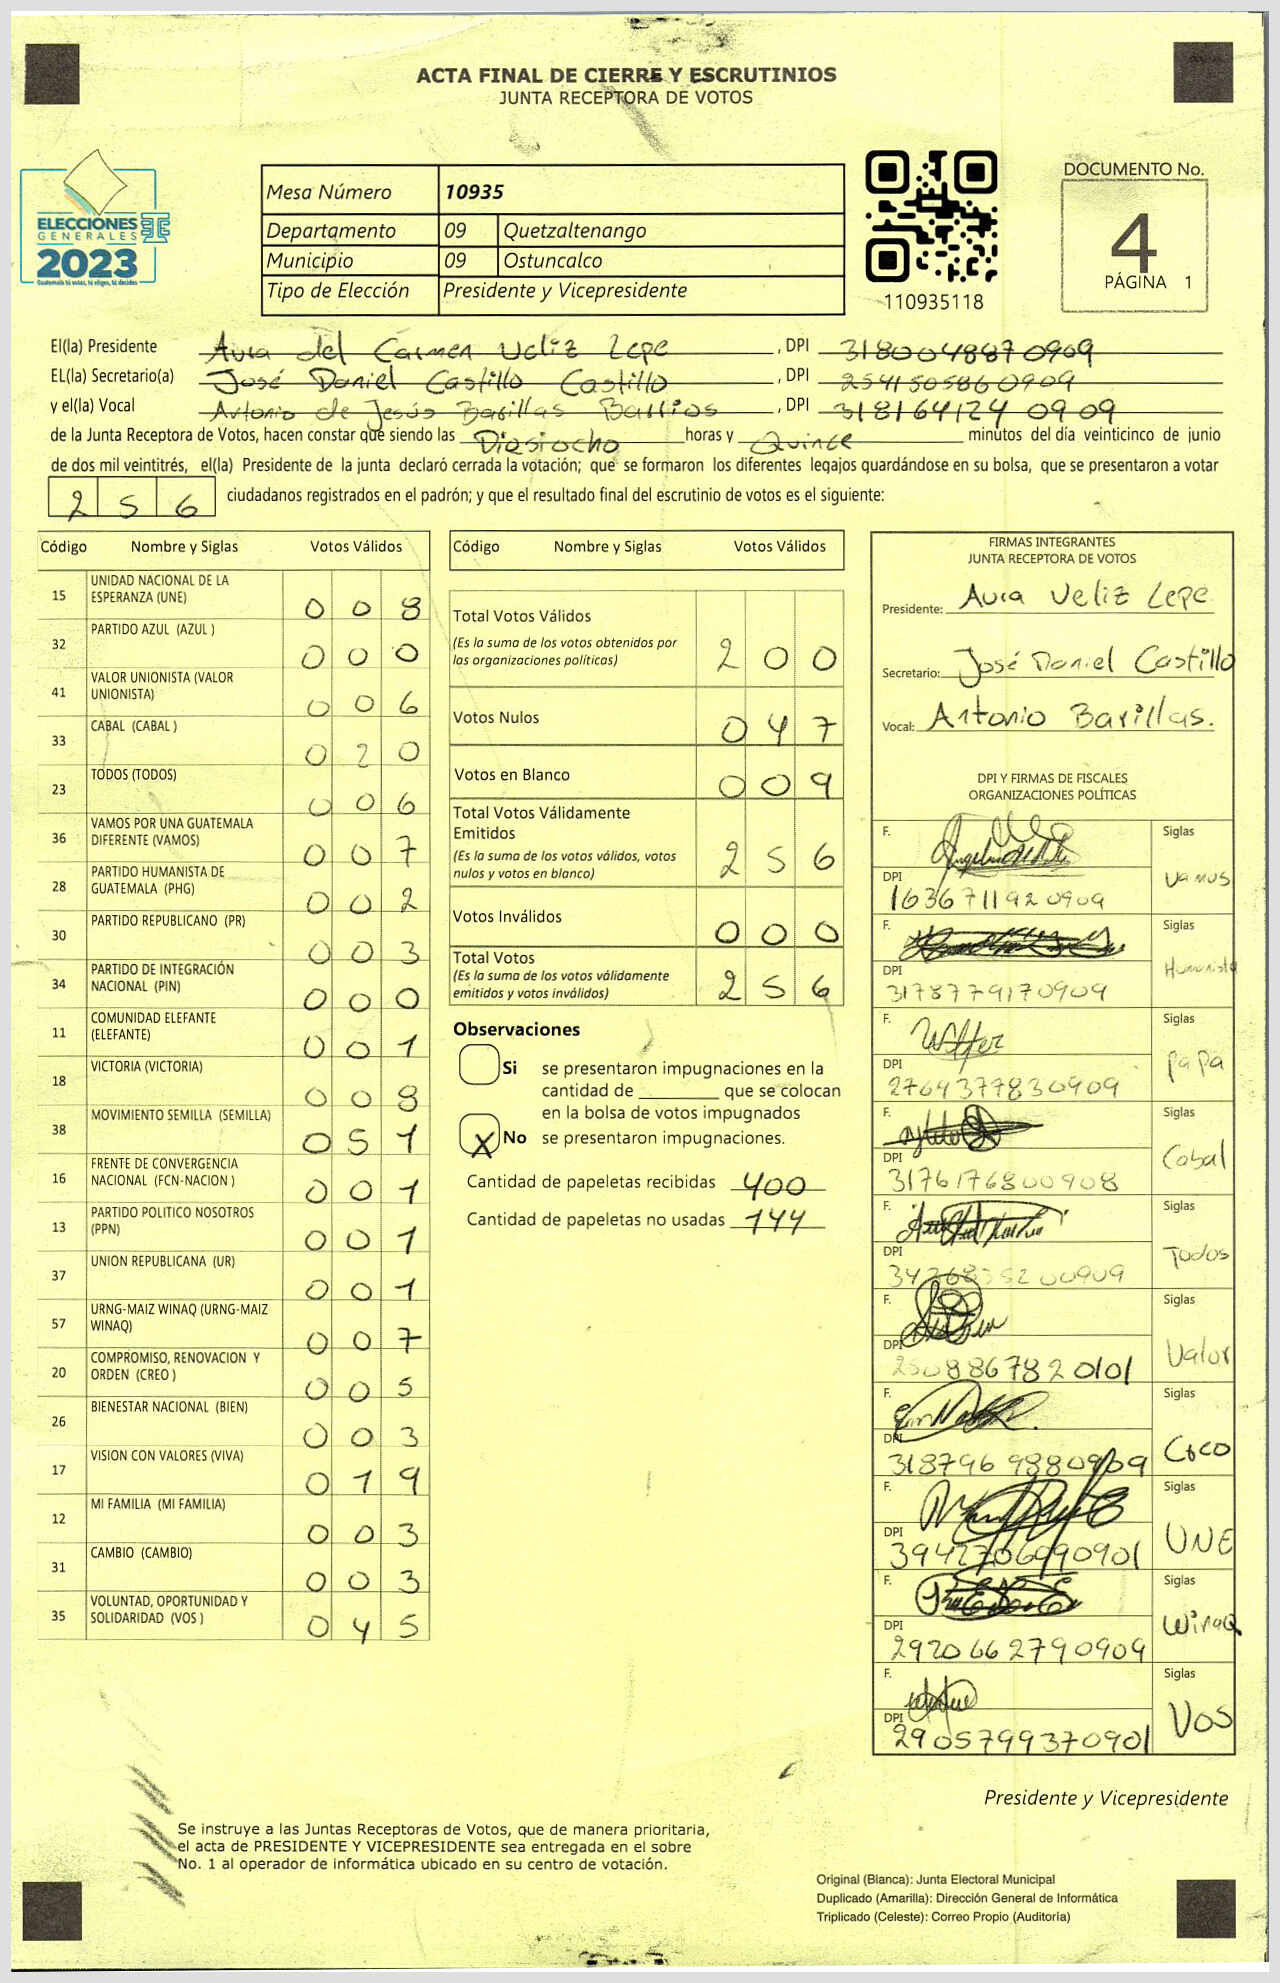 ACTA FINAL DE CIERRE Y ESCRUTINIOS
JUNTA RECEPTORA DE VOTOS
ELECCIONES
GENERALES
2023
Guatemala tú votas, tú eliges, tú decides
Mesa Número 10935
Departamento 09 Quetzaltenango
Municipio 09 Ostuncalco
Tipo de Elección Presidente y Vicepresidente
110935118
DOCUMENTO No.
4
PÁGINA 1
El(la) Presidente Aura del Carmen Veliz Lepe , DPI 3180048870909
EL(la) Secretario(a) José Daniel Castillo Castillo , DPI 2541505860909
y el(la) Vocal Antonio de Jesús Barillas Barrios , DPI 3181641240909
de la Junta Receptora de Votos, hacen constar que siendo las Diesiocho horas y Quince minutos del día veinticinco de junio
de dos mil veintitrés, el(la) Presidente de la junta declaró cerrada la votación; que se formaron los diferentes legajos guardándose en su bolsa, que se presentaron a votar
2 5 6 ciudadanos registrados en el padrón; y que el resultado final del escrutinio de votos es el siguiente:
Código Nombre y Siglas Votos Válidos
15 UNIDAD NACIONAL DE LA
ESPERANZA (UNE) 0 0 8
32 PARTIDO AZUL (AZUL ) 0 0 0
41 VALOR UNIONISTA (VALOR
UNIONISTA) 0 0 6
33 CABAL (CABAL ) 0 2 0
23 TODOS (TODOS) 0 0 6
36 VAMOS POR UNA GUATEMALA
DIFERENTE (VAMOS) 0 0 7
28 PARTIDO HUMANISTA DE
GUATEMALA (PHG) 0 0 2
30 PARTIDO REPUBLICANO (PR) 0 0 3
34 PARTIDO DE INTEGRACIÓN
NACIONAL (PIN) 0 0 0
11 COMUNIDAD ELEFANTE
(ELEFANTE) 0 0 1
18 VICTORIA (VICTORIA) 0 0 8
38 MOVIMIENTO SEMILLA (SEMILLA) 0 5 1
16 FRENTE DE CONVERGENCIA
NACIONAL (FCN-NACION ) 0 0 1
13 PARTIDO POLITICO NOSOTROS
(PPN) 0 0 1
37 UNION REPUBLICANA (UR) 0 0 1
57 URNG-MAIZ WINAQ (URNG-MAIZ
WINAQ) 0 0 7
20 COMPROMISO, RENOVACION Y
ORDEN (CREO ) 0 0 5
26 BIENESTAR NACIONAL (BIEN) 0 0 3
17 VISION CON VALORES (VIVA) 0 1 9
12 MI FAMILIA (MI FAMILIA) 0 0 3
31 CAMBIO (CAMBIO) 0 0 3
35 VOLUNTAD, OPORTUNIDAD Y
SOLIDARIDAD (VOS ) 0 4 5
Código Nombre y Siglas Votos Válidos
Total Votos Válidos
(Es la suma de los votos obtenidos por
las organizaciones políticas) 2 0 0
Votos Nulos 0 4 7
Votos en Blanco 0 0 9
Total Votos Válidamente
Emitidos
(Es la suma de los votos válidos, votos
nulos y votos en blanco) 2 5 6
Votos Inválidos 0 0 0
Total Votos
(Es la suma de los votos válidamente
emitidos y votos inválidos) 2 5 6
Observaciones
Si se presentaron impugnaciones en la
cantidad de ________ que se colocan
en la bolsa de votos impugnados
X No se presentaron impugnaciones.
Cantidad de papeletas recibidas 400
Cantidad de papeletas no usadas 144
FIRMAS INTEGRANTES
JUNTA RECEPTORA DE VOTOS
Presidente: Aura Veliz Lepe
Secretario: José Daniel Castillo
Vocal: Antonio Barillas.
DPI Y FIRMAS DE FISCALES
ORGANIZACIONES POLÍTICAS
F. Siglas
Vamos
DPI
1636711920909
F. Siglas
Humanista
DPI
3178779170909
F. Siglas
Papa
DPI
2764377830909
F. Siglas
Cabal
DPI
3176176800908
F. Siglas
Todos
DPI
F. Siglas
Valor
DPI
2508867820101
F. Siglas
DPI
3187969880909
F. Siglas
UNE
DPI
F. Siglas
WinaQ
DPI
2920662790909
F. Siglas
VOS
DPI
2905799370901
Presidente y Vicepresidente
Se instruye a las Juntas Receptoras de Votos, que de manera prioritaria,
el acta de PRESIDENTE Y VICEPRESIDENTE sea entregada en el sobre
No. 1 al operador de informática ubicado en su centro de votación.
Original (Blanca): Junta Electoral Municipal
Duplicado (Amarilla): Dirección General de Informática
Triplicado (Celeste): Correo Propio (Auditoría)